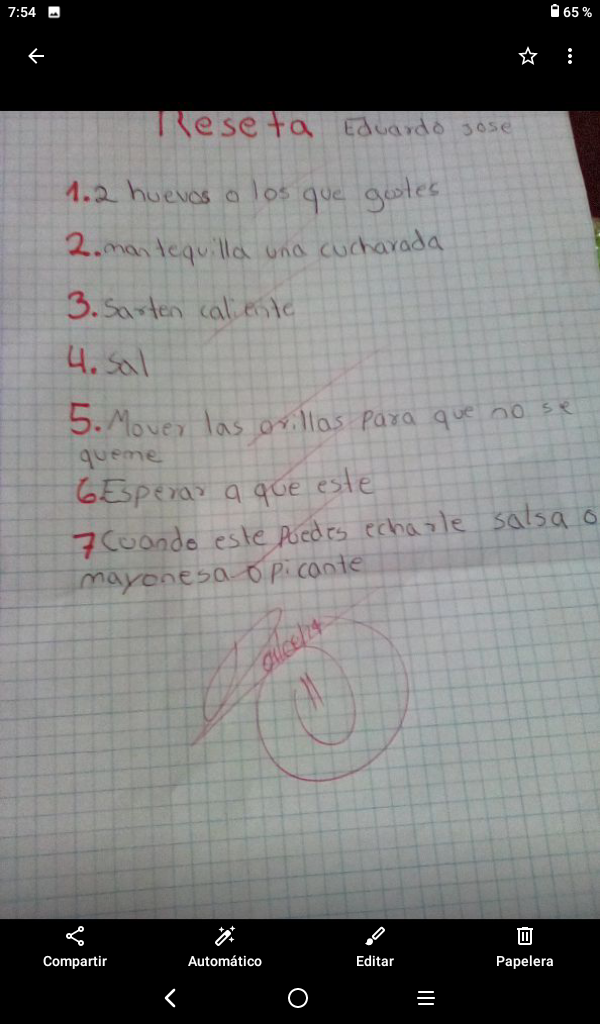 7:54 65 %
Reseta Eduardo jose
1. 2 huevos o los que gustes
2. mantequilla una cucharada
3. Sarten caliente
4. Sal
5. Mover las orillas para que no se
queme
6 Esperar a que este
7 Cuando este puedes echarle salsa o
mayonesa o picante
Compartir Automático Editar Papelera